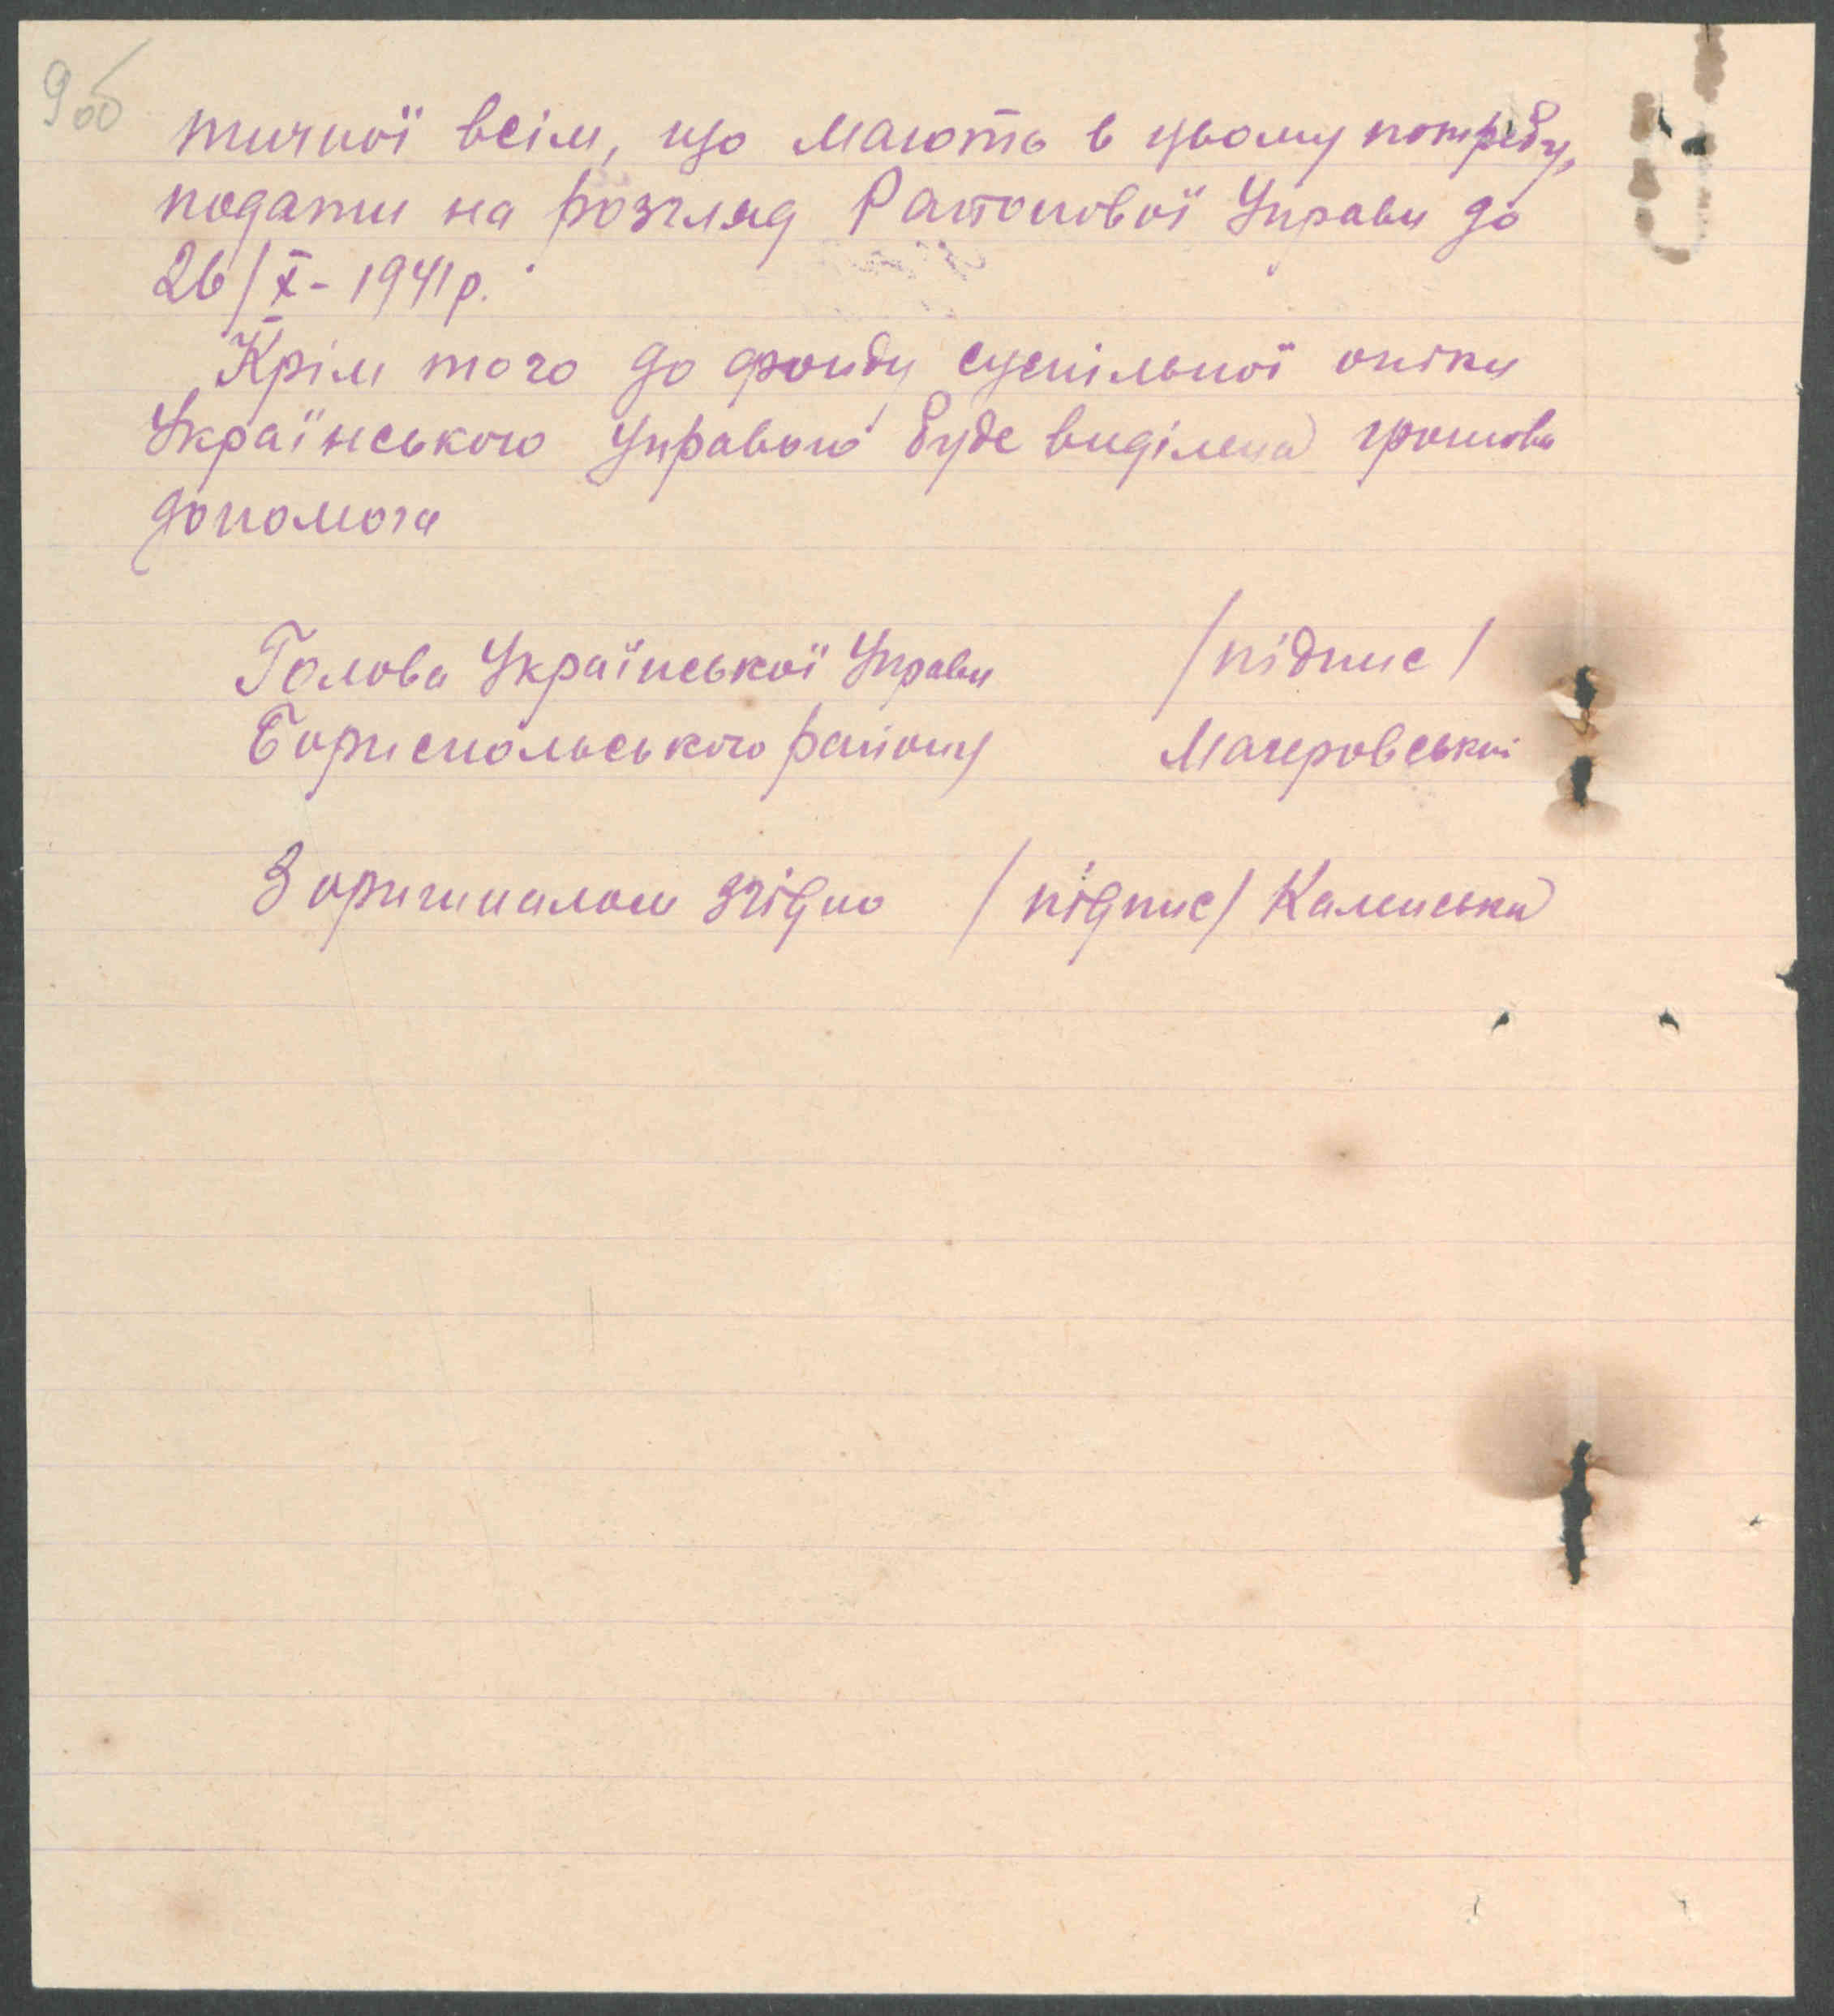 9об
тичної всім, що мають в цьому потребу,
подати на розгляд Районової Управи до
26/X - 1941 р.
Крім того до фонду суспільної опіки
Українською Управою буде виділена грошова
допомога
Голова Української Управи /підпис/
Бориспольського району Магеровський
З оригиналом згідно /підпис/ Каминська